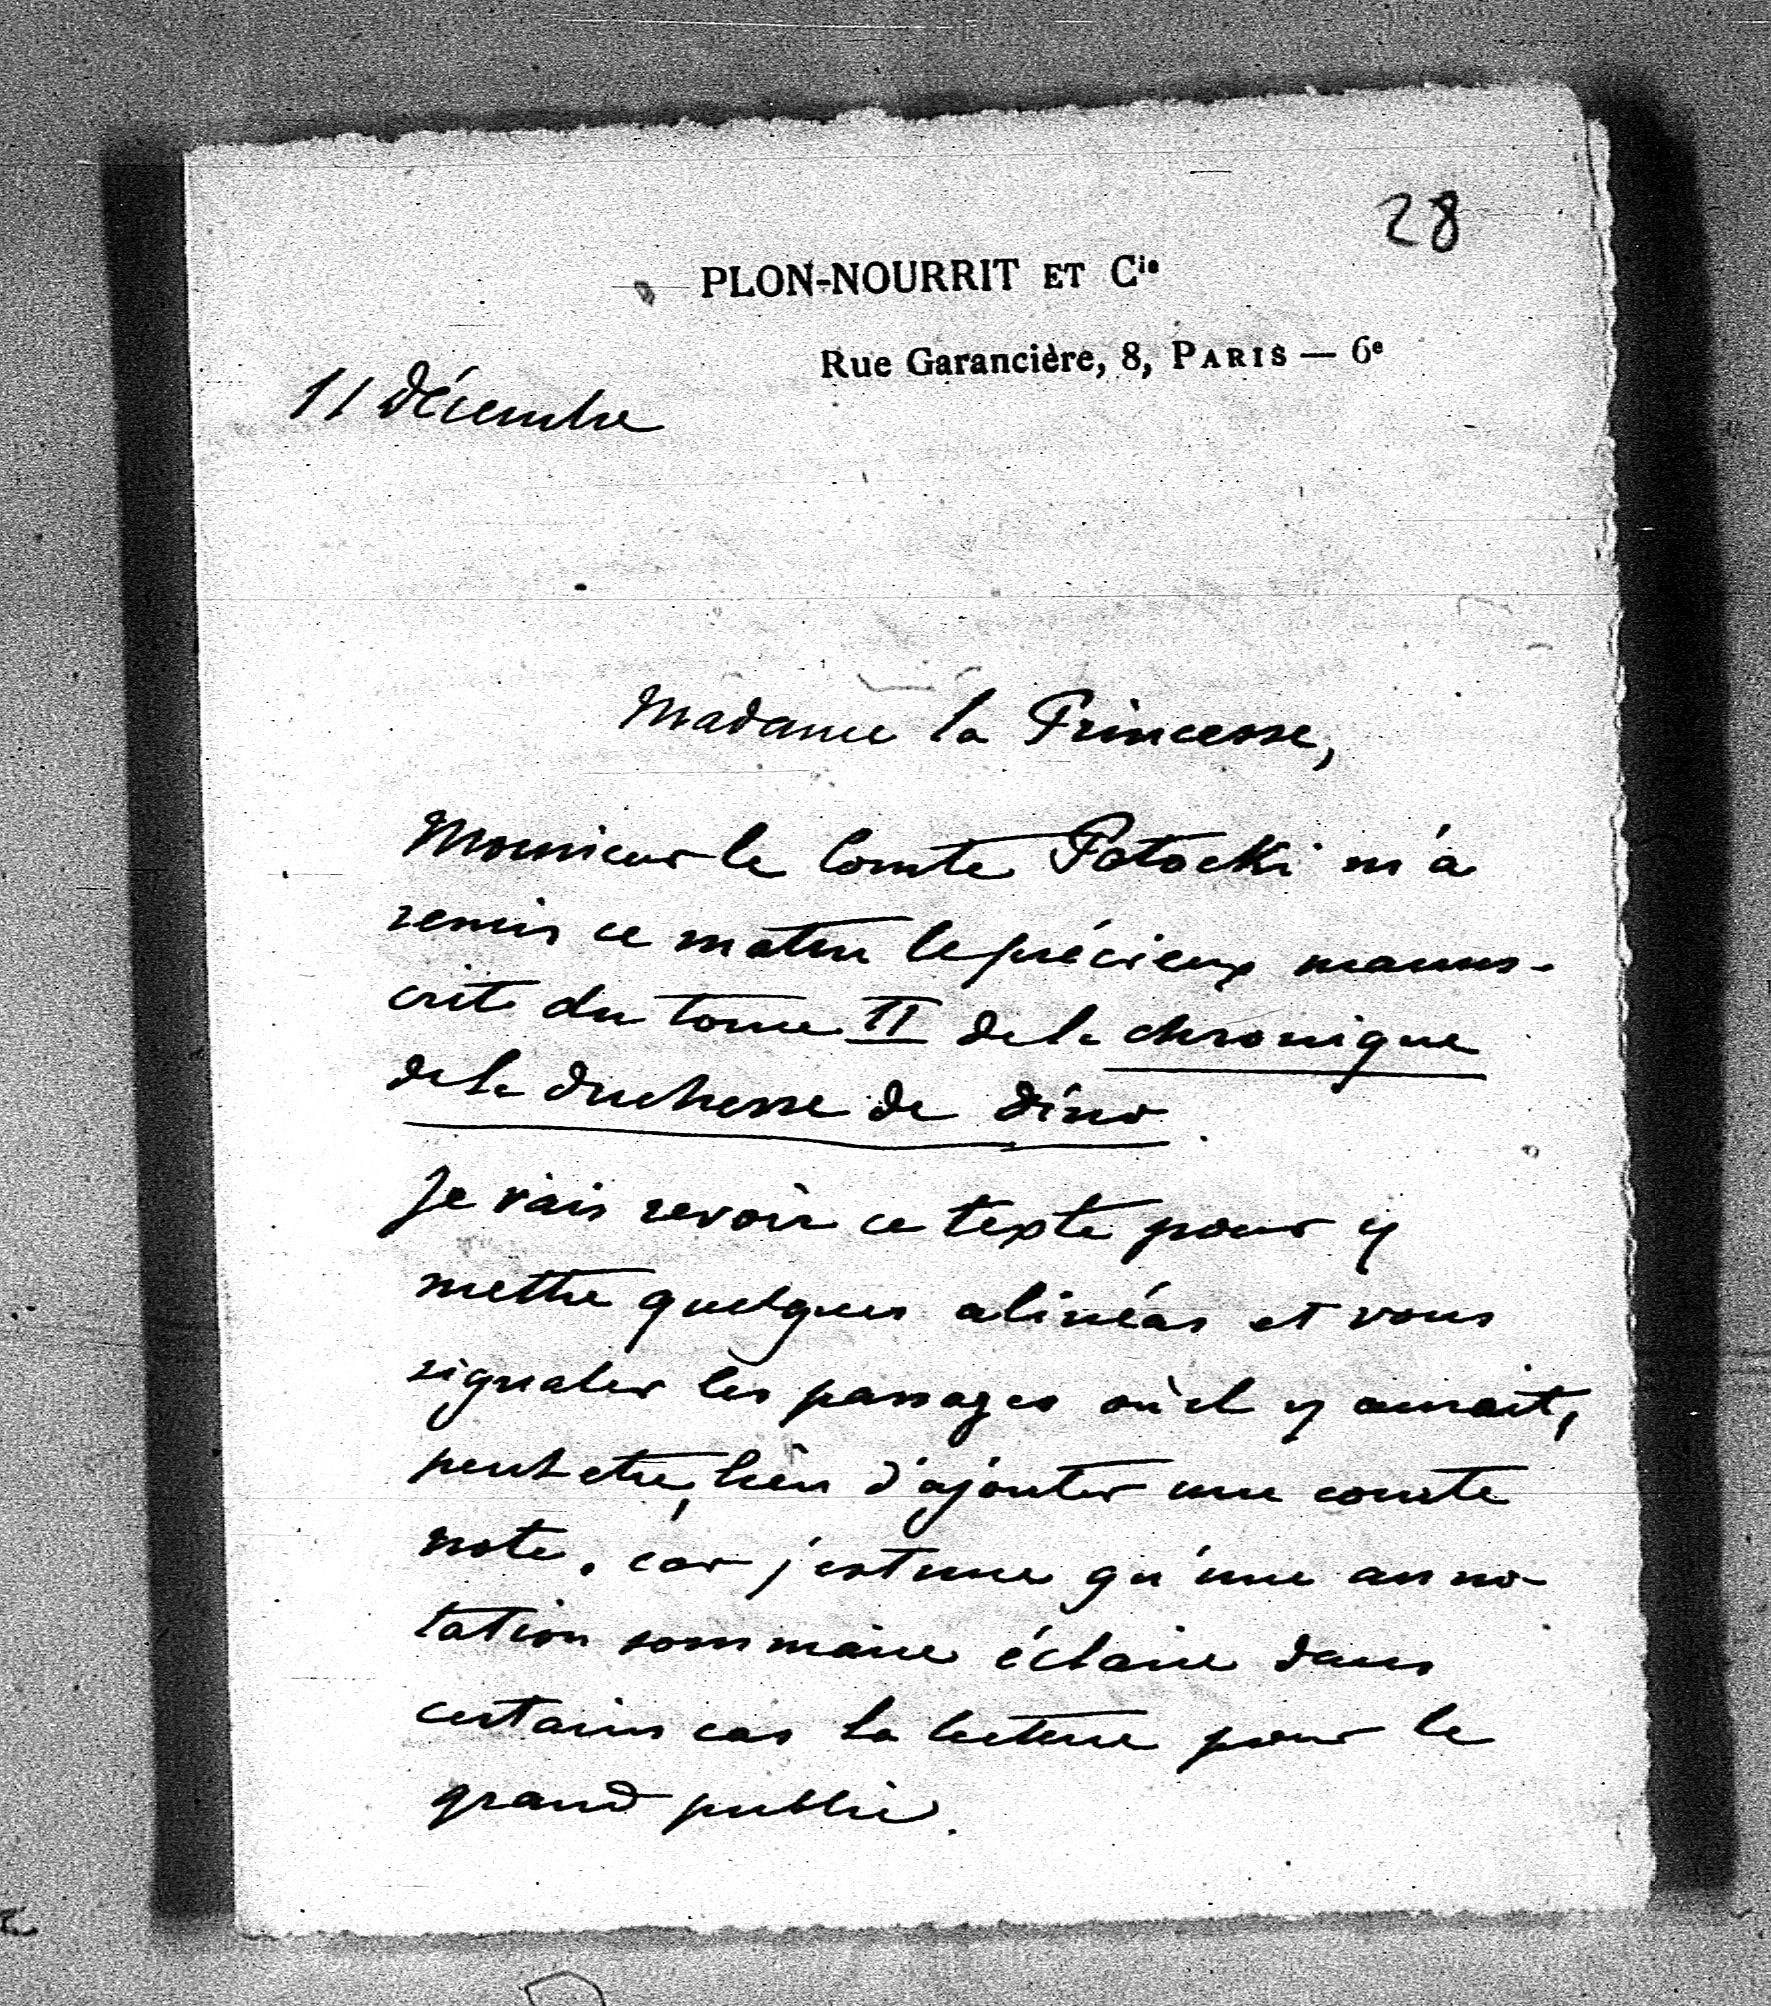 28
PLON-NOURRIT ET Cie
Rue Garancière, 8, PARIS — 6e
11 Décembre
Madame la Princesse,
Monsieur le Comte Potocki m'a
remis ce matin le précieux manus-
crit du tome II de la chronique
de la Duchesse de Dino.
Je vais revoir ce texte pour y
mettre quelques alinéas et vous
signaler les passages où il y aurait,
peut etre, lieu d'ajouter une courte
note. Car j'estime qu'une anno-
tation sommaire éclaire dans
certains cas la lecture pour le
grand public.